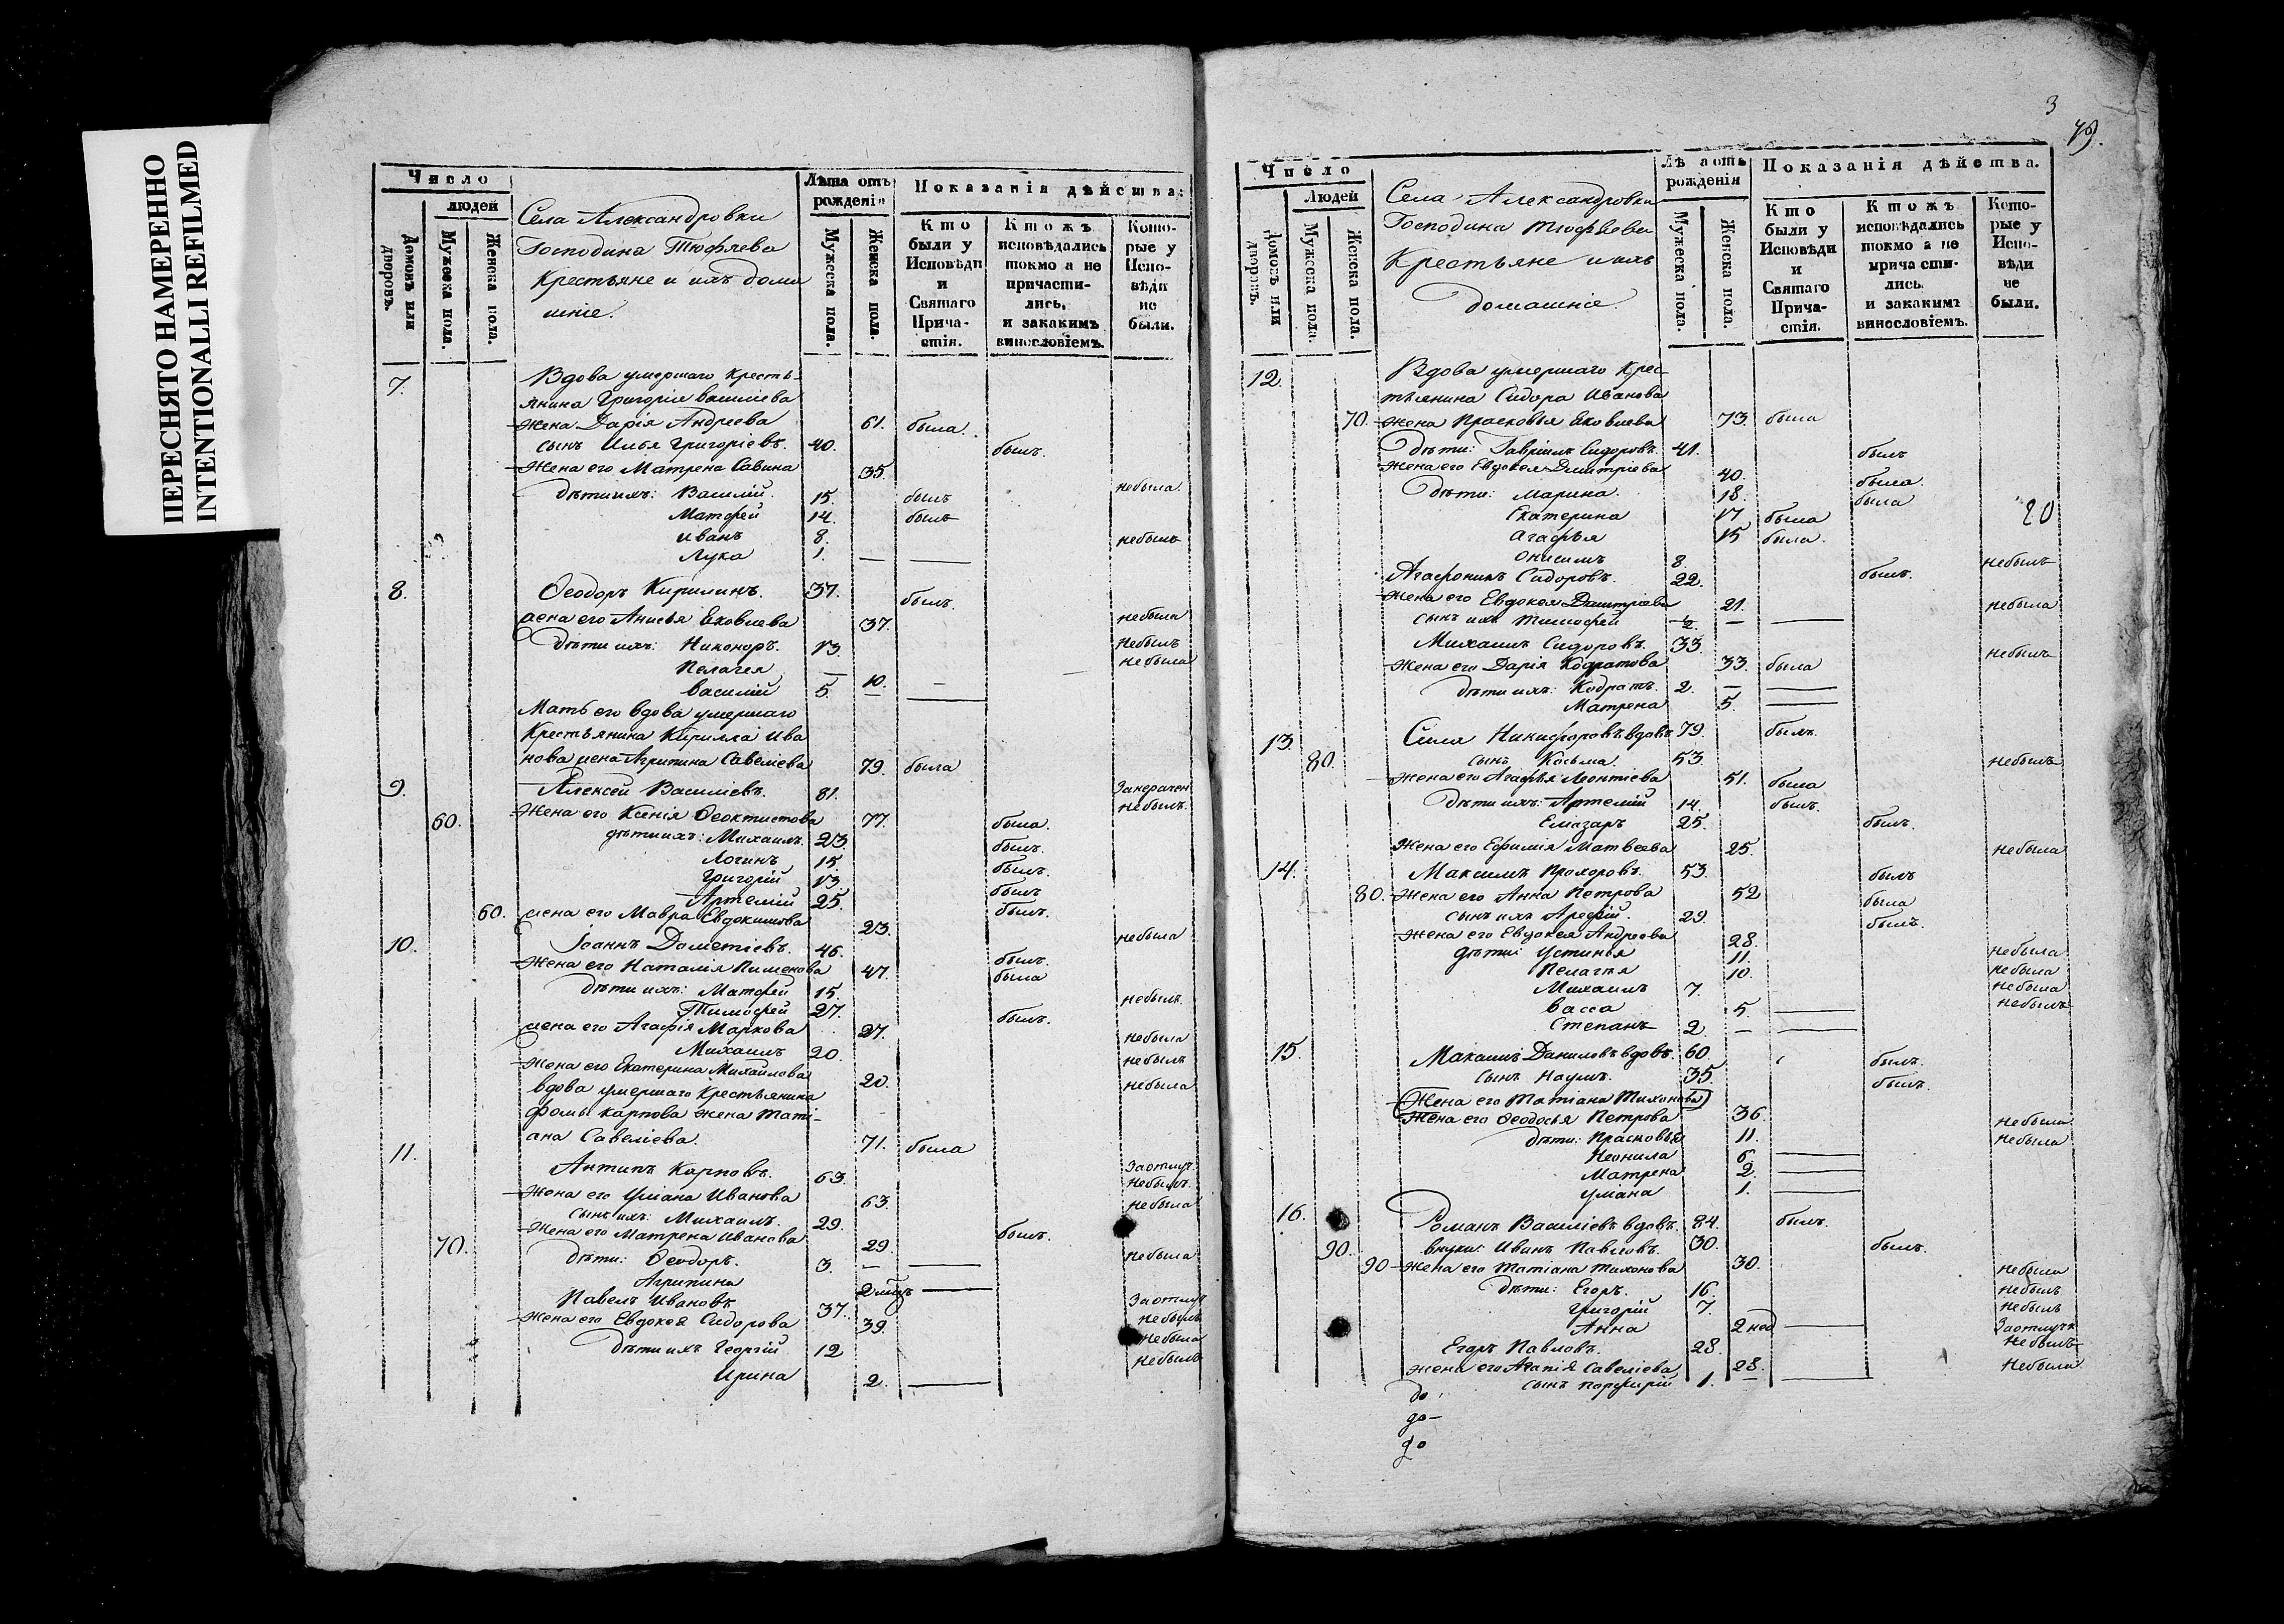 ПЕРЕСНЯТО НАМЕРЕННО
INTENTIONALLI REFILMED
Число
людей
Домовъ или дворовъ.
Мужеска пола.
Женска пола.
Села Александровки
Господина Тюфяева
Крестьяне и ихъ дома
шніе.
Лѣта отъ рожденія
Мужеска пола.
Женска пола.
Показанія дѣйства:
Кто были у Исповѣди и Святаго Прича-стія.
Ктожъ исповѣдались токмо а не причасти-лись, и закакимъ винословіемъ.
Кото-рые у Испо-вѣди не были.
7. Вдова умершаго кресть-
янина Григорія Василіева
жена Дарія Андреева 61. была.
сынъ Илья Григоріевъ. 40. былъ.
Жена его Матрена Савина 35. небыла
дѣти ихъ: Василій. 15. былъ
Матфей 14. былъ
Иванъ 8. небылъ
Лука 1. — —
8. Ѳеодоръ Кирилинъ. 37. былъ.
жена его Анисья Яковлева 37. небыла
Дѣти ихъ: Никоноръ. 13. небылъ
Пелагея — 10. — небыла
Василий 5. — —
Мать его вдова умершаго
Крестьянина Кирилла Ива
нова жена Агрипина Савелиева 79. была
9. Алексей Василіевъ. 81. небылъ.
60. Жена его Ксенія Ѳеоктистова 77. была.
дѣти ихъ: Михаилъ. 23. былъ.
Логинъ 15. былъ.
Григорій 13. былъ
Артемій 25. былъ.
60. жена его Мавра Евдокимова 23. небыла
10. Іоаннъ Дометіевъ. 46. былъ.
Жена его Наталія Пименова 47. была
Дѣти ихъ: Матфей 15. небылъ.
Тимофей 27. былъ.
жена его Агафія Маркова 27. небыла
Михаилъ 20. небылъ
Жена его Екатерина Михайлова 20. небыла
вдова умершаго Крестьянина
фомы карпова жена Тати-
ана Савеліева. 71. была
11. Антипъ Карповъ. 63. Заотлуч. небылъ.
Жена его Уліана Иванова 63. небыла
Сынъ ихъ: Михаилъ. 29. былъ.
70. Жена его Матрена Иванова 29. небыла
Дѣти: Ѳеодоръ. 3. — —
Агрипина —
Павелъ Ивановъ 37. Заотлуч небылъ
Жена его Евдокея Сидорова 39. небыла
Дѣти ихъ Георгій 12 небылъ
Ирина 2. —
3
Число
Людей
Домовъ или дворовъ.
Мужеска пола.
Женска пола.
Села Александровки
Господина Тюфяева
Крестьяне и ихъ
домашніе.
Лѣта отъ рожденія
Мужеска пола.
Женска пола.
Показанія дѣйства.
Кто были у Исповѣди и Святаго Прича-стія.
Ктожъ исповѣдались токмо а не причасти-лись. и закакимъ винословіемъ.
Кото-рые у Испо-вѣди не были.
12. Вдова умершаго Крес-
тьянина Сидора Иванова
70. жена Прасковья Яковлева 73. была
Дѣти: Гавріилъ Сидоровъ. 41. былъ
жена его Евдокея Дмитріева 40. была
Дѣти: Марина. 18. была
Екатерина 17 была 20
Агафья 15 была.
Онисимъ 8. небылъ
Агафоникъ Сидоровъ. 22. былъ.
Жена его Евдокея Дмитріева 21. небыла
Сынъ ихъ Тимофей ½. — —
Михаилъ Сидоровъ. 33. небылъ
Жена его Дарія Кодратова 33. была
дѣти ихъ: Кодратъ. 2. — —
Матрена 5. —
13. Сила Никифоровъ вдовъ 79. былъ.
80. сынъ Косьма. 53. небылъ
Жена его Агафья Леонтіева 51. была
Дѣти ихъ: Артемій 14. былъ.
Елиазаръ 25. былъ.
Жена его Ефимія Матвеева 25. небыла
14. Максимъ Прохоровъ. 53. былъ
80. Жена его Анна Петрова 52 была
Сынъ ихъ Арефій. 29. былъ.
Жена его Евдокея Андреева 28. небыла
Дѣти: Устинья 11. небыла
Пелагея 10. небыла
Михаилъ 7. небылъ
Васса 5. —
Степанъ 2. — —
15. Даниловъ вдовъ. 60. былъ.
Сынъ Наумъ. 35. былъ.
Жена его Татіана Тихонова
Жена его Ѳеодосья Петрова 36. небыла
дѣти: Прасковья 11. небыла
Неонила 6. —
Матрена 2. —
Уліана 1. —
16. Романъ Василіевъ вдовъ. 84. былъ.
90. внуки: Иванъ Павловъ. 30. былъ.
90 Жена его Татіана Тихонова 30. небыла
Дѣти: Егоръ. 16. небылъ
Григорій 7. небылъ
Анна 2 нед —
Егоръ Павловъ. 28. Заотлучк небылъ
Жена его Агапія Савеліева 28. небыла
сынъ Порфирій 1. — —
до
до-
до